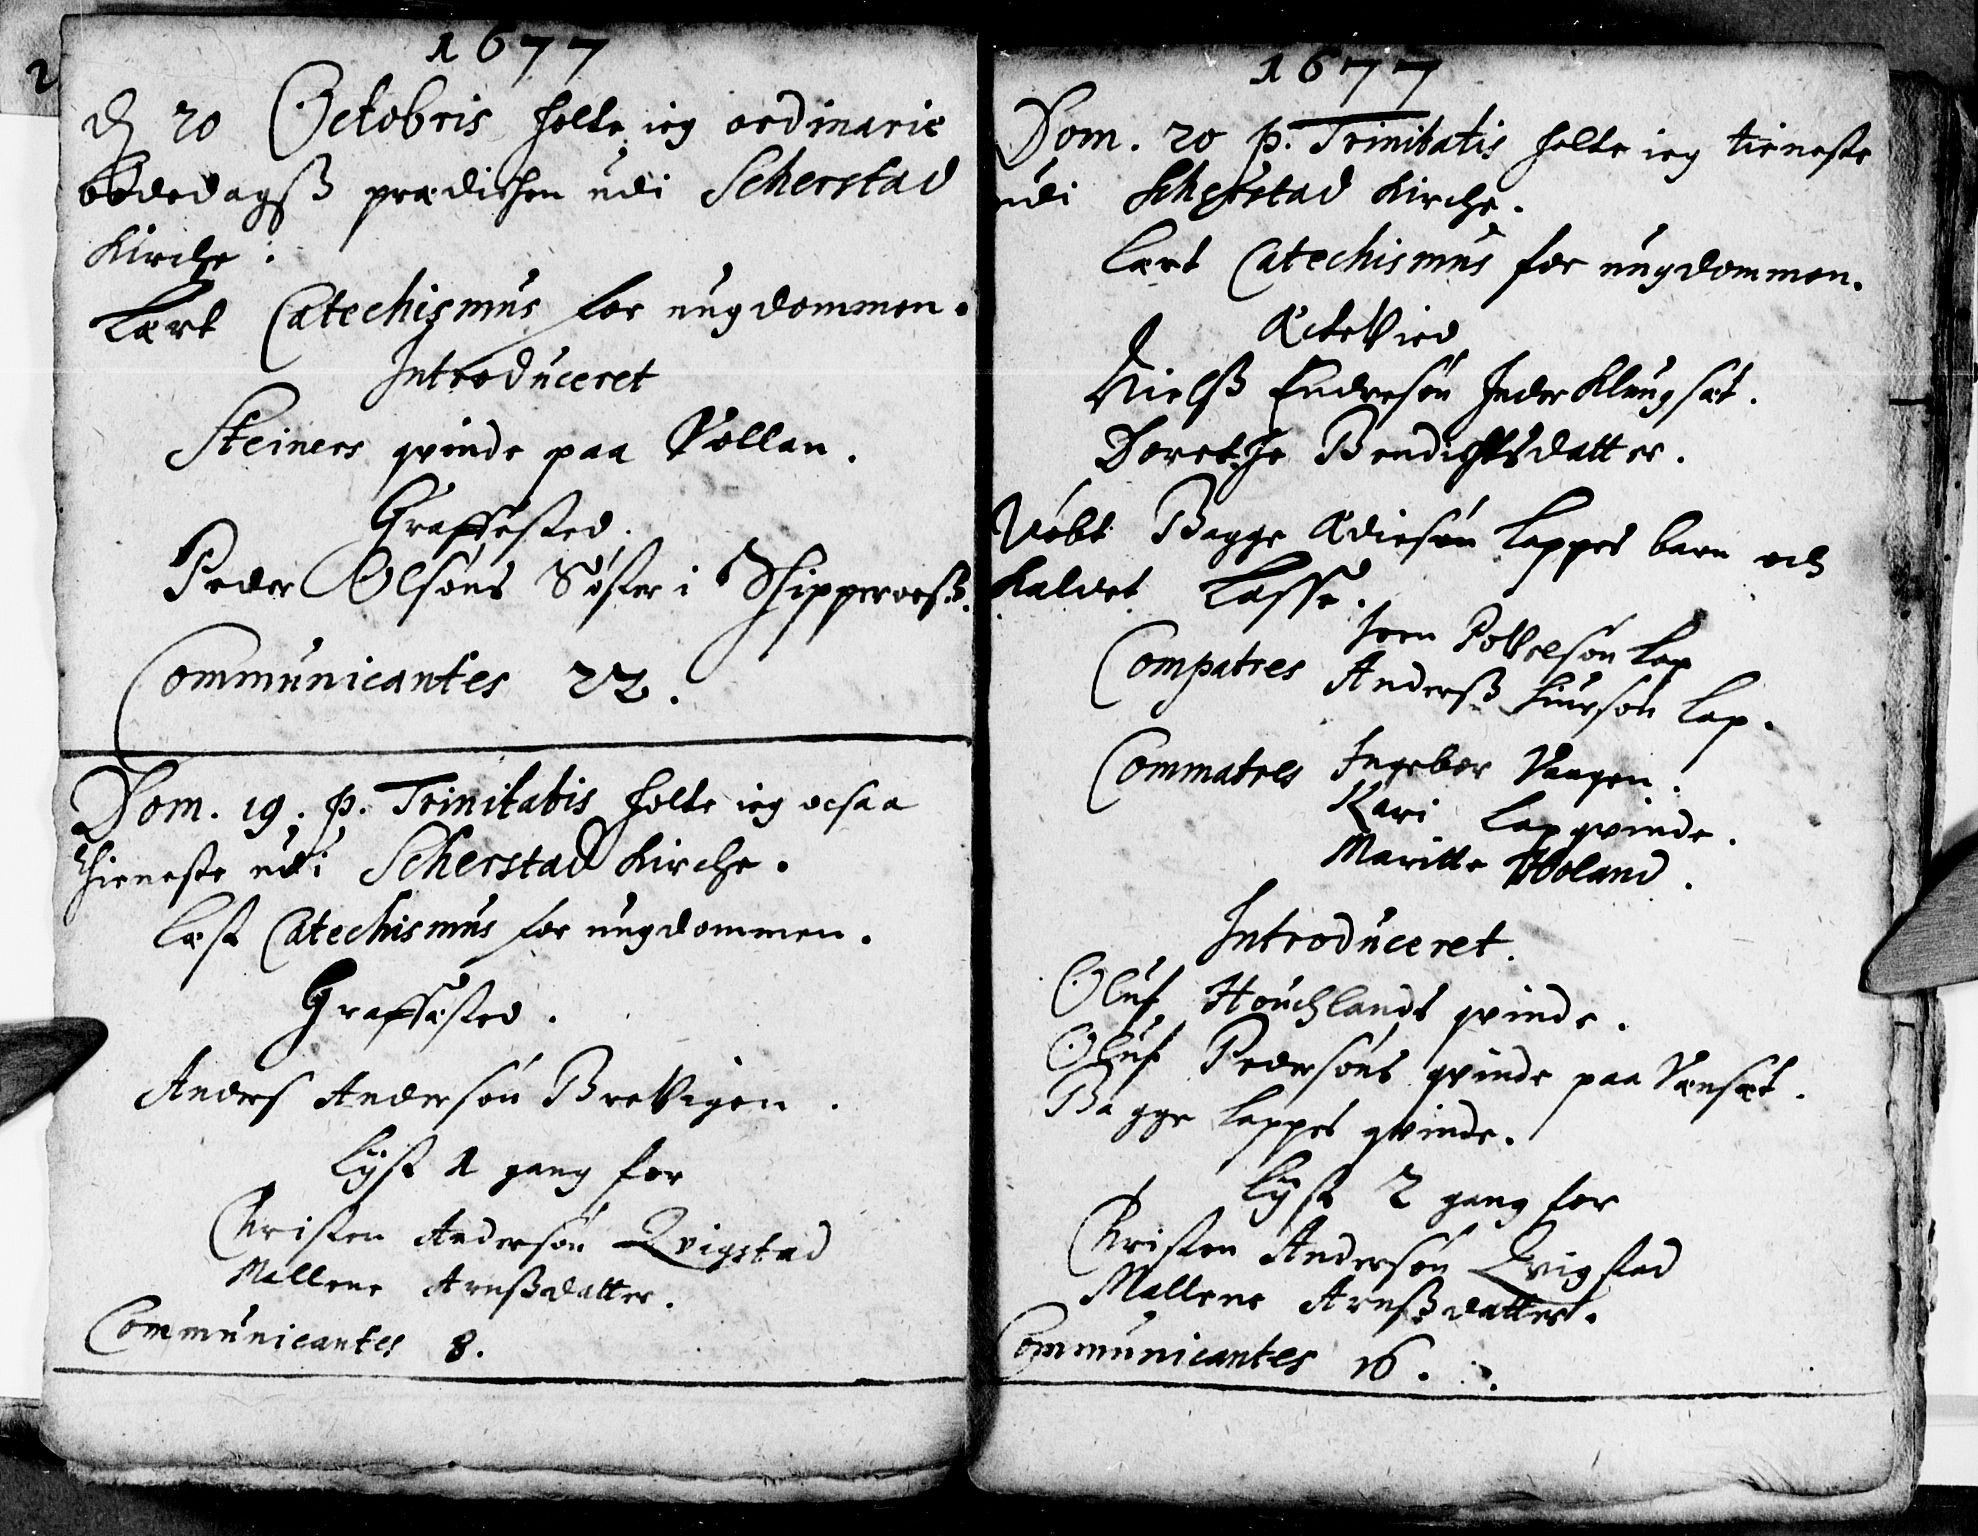 2
1677
d 20 Octobris holte ieg ordinarie
bededagß prædichen udi Scherstad
Kirche:
Lært Catechismus for ungdommen.
Introduceret
Steiners qvinde paa Vollan.
Graffested.
Peder Olsøns Søster i Schipperoeß.
Communicantes 22.
Dom. 19. p. Trinitatis holte ieg ocsaa
thieneste udi Scherstad Kirche.
læst Catechismus for ungdommen.
Graffæsted.
Anders Andersøn Brevigen.
lyst 1 gang for
Christen Andersøn Qvigstad
Mallene Arnßdatter.
Communicantes 8.
1677
Dom. 20 p. Trinitatis holte ieg tieneste
udi Scherstad Kirche.
lært Catechismus for ungdommen.
Ectevied
Nielß Endresøn Inder Klungset.
Dorethe Bendichtsdatter.
Døbt Bagge Adiesøn Lappes barn och
kaldet Lasse.
Compatres Iven Povelsøn Lap
Anderß Siursøn Lap.
Commatres Ingebor Vaagen.
Kari Lapqvinde.
Maritte Holand.
Introduceret.
Oluf Houchlands qvinde.
Oluf Pedersøns qvinde paa Venset.
Bagge Lappes qvinde.
lyst 2 gang for
Christen Andersøn Qvigstad
Mallene Arnßdatter.
Communicantes 16.